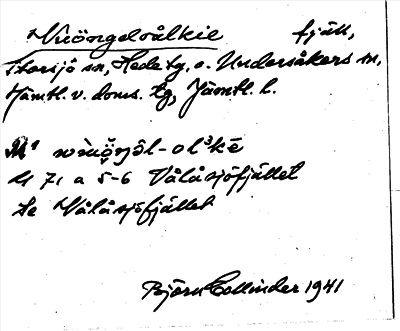 Vuöngelvålkie fjäll,
Storsjö sn, Hede tg, o. Undersåkers sn,
Jämtl. v. doms. tg, Jämtl. l.
M¹ -ol³kē
U 71 a 5-6 Vålåsjöfjället
Se Vålåsjöfjället
Björn Collinder 1941